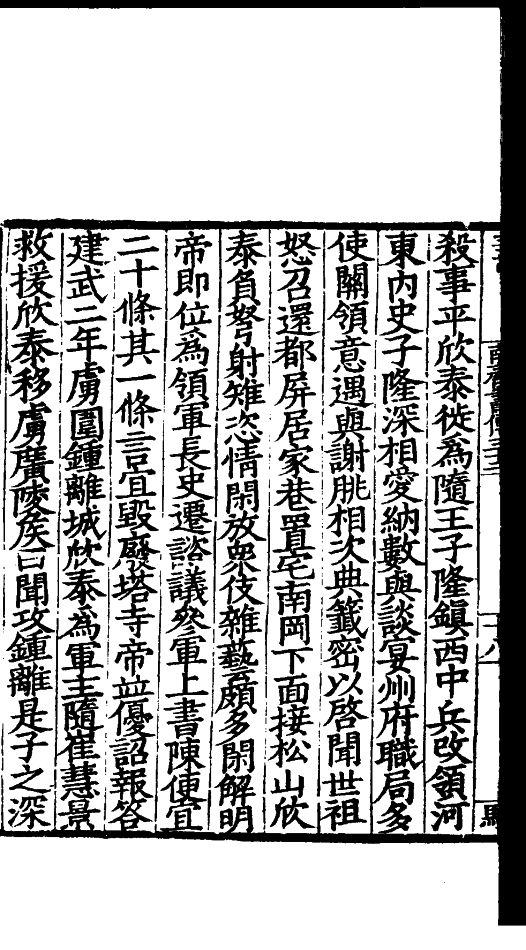 殺事平欣泰徙爲隨王子隆鎭西中兵改領河
東內史子隆深相愛納數與談宴州府職局多
使關領意遇與謝朓相次典籤密以啓聞世祖
怒召還都屏居家巷置宅南岡下面接松山欣
泰負弩射雉恣情閑放衆伎雜藝頗多閑解明
帝即位爲領軍長史遷諮議參軍上書陳便宜
二十條其一條言宜毀廢塔寺帝並優詔報答
建武二年虜圍鍾離城欣泰爲軍主隨崔慧景
救援欣泰移虜廣陵侯曰聞攻鍾離是子之深